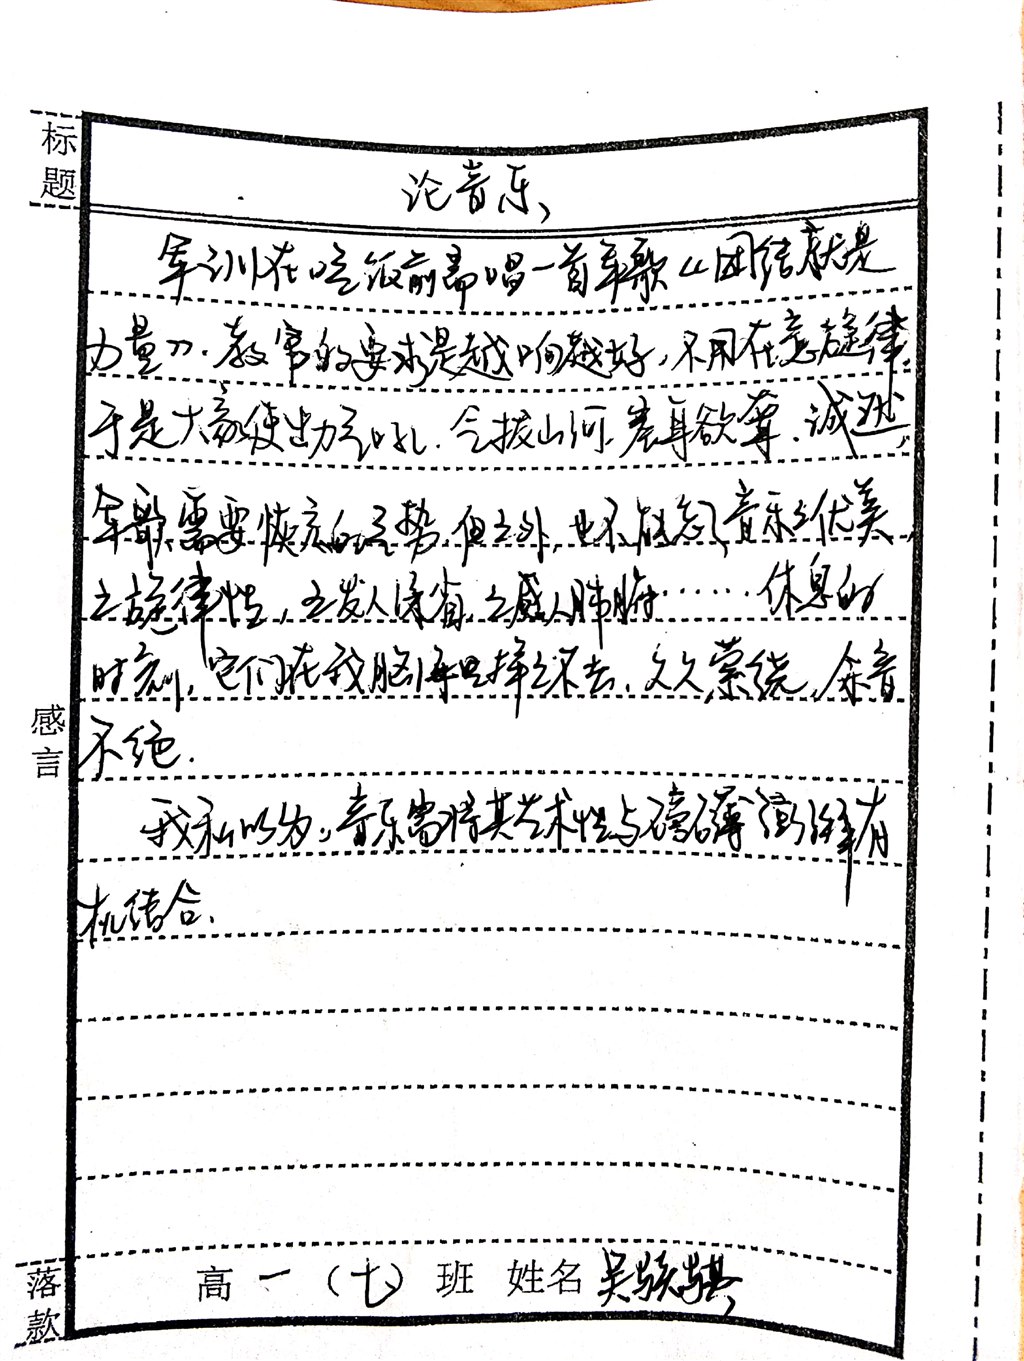 标题
论音乐
军训在吃饭前需唱一首军歌《团结就是
力量》.教官的要求是越响越好,不用在意旋律,
于是大家使出力气吼.气拔山河,震耳欲聋.诚然,
军歌需要恢宏的气势,但之外,也不能忘了音乐之优美,
之旋律性,之发人深省,之感人肺腑……休息的
时刻,它们在我脑海里挥之不去,久久萦绕,余音
不绝.
感言
我私以为,音乐需将其艺术性与磅礴澎湃有
机结合.
落款
高一(七)班 姓名 吴